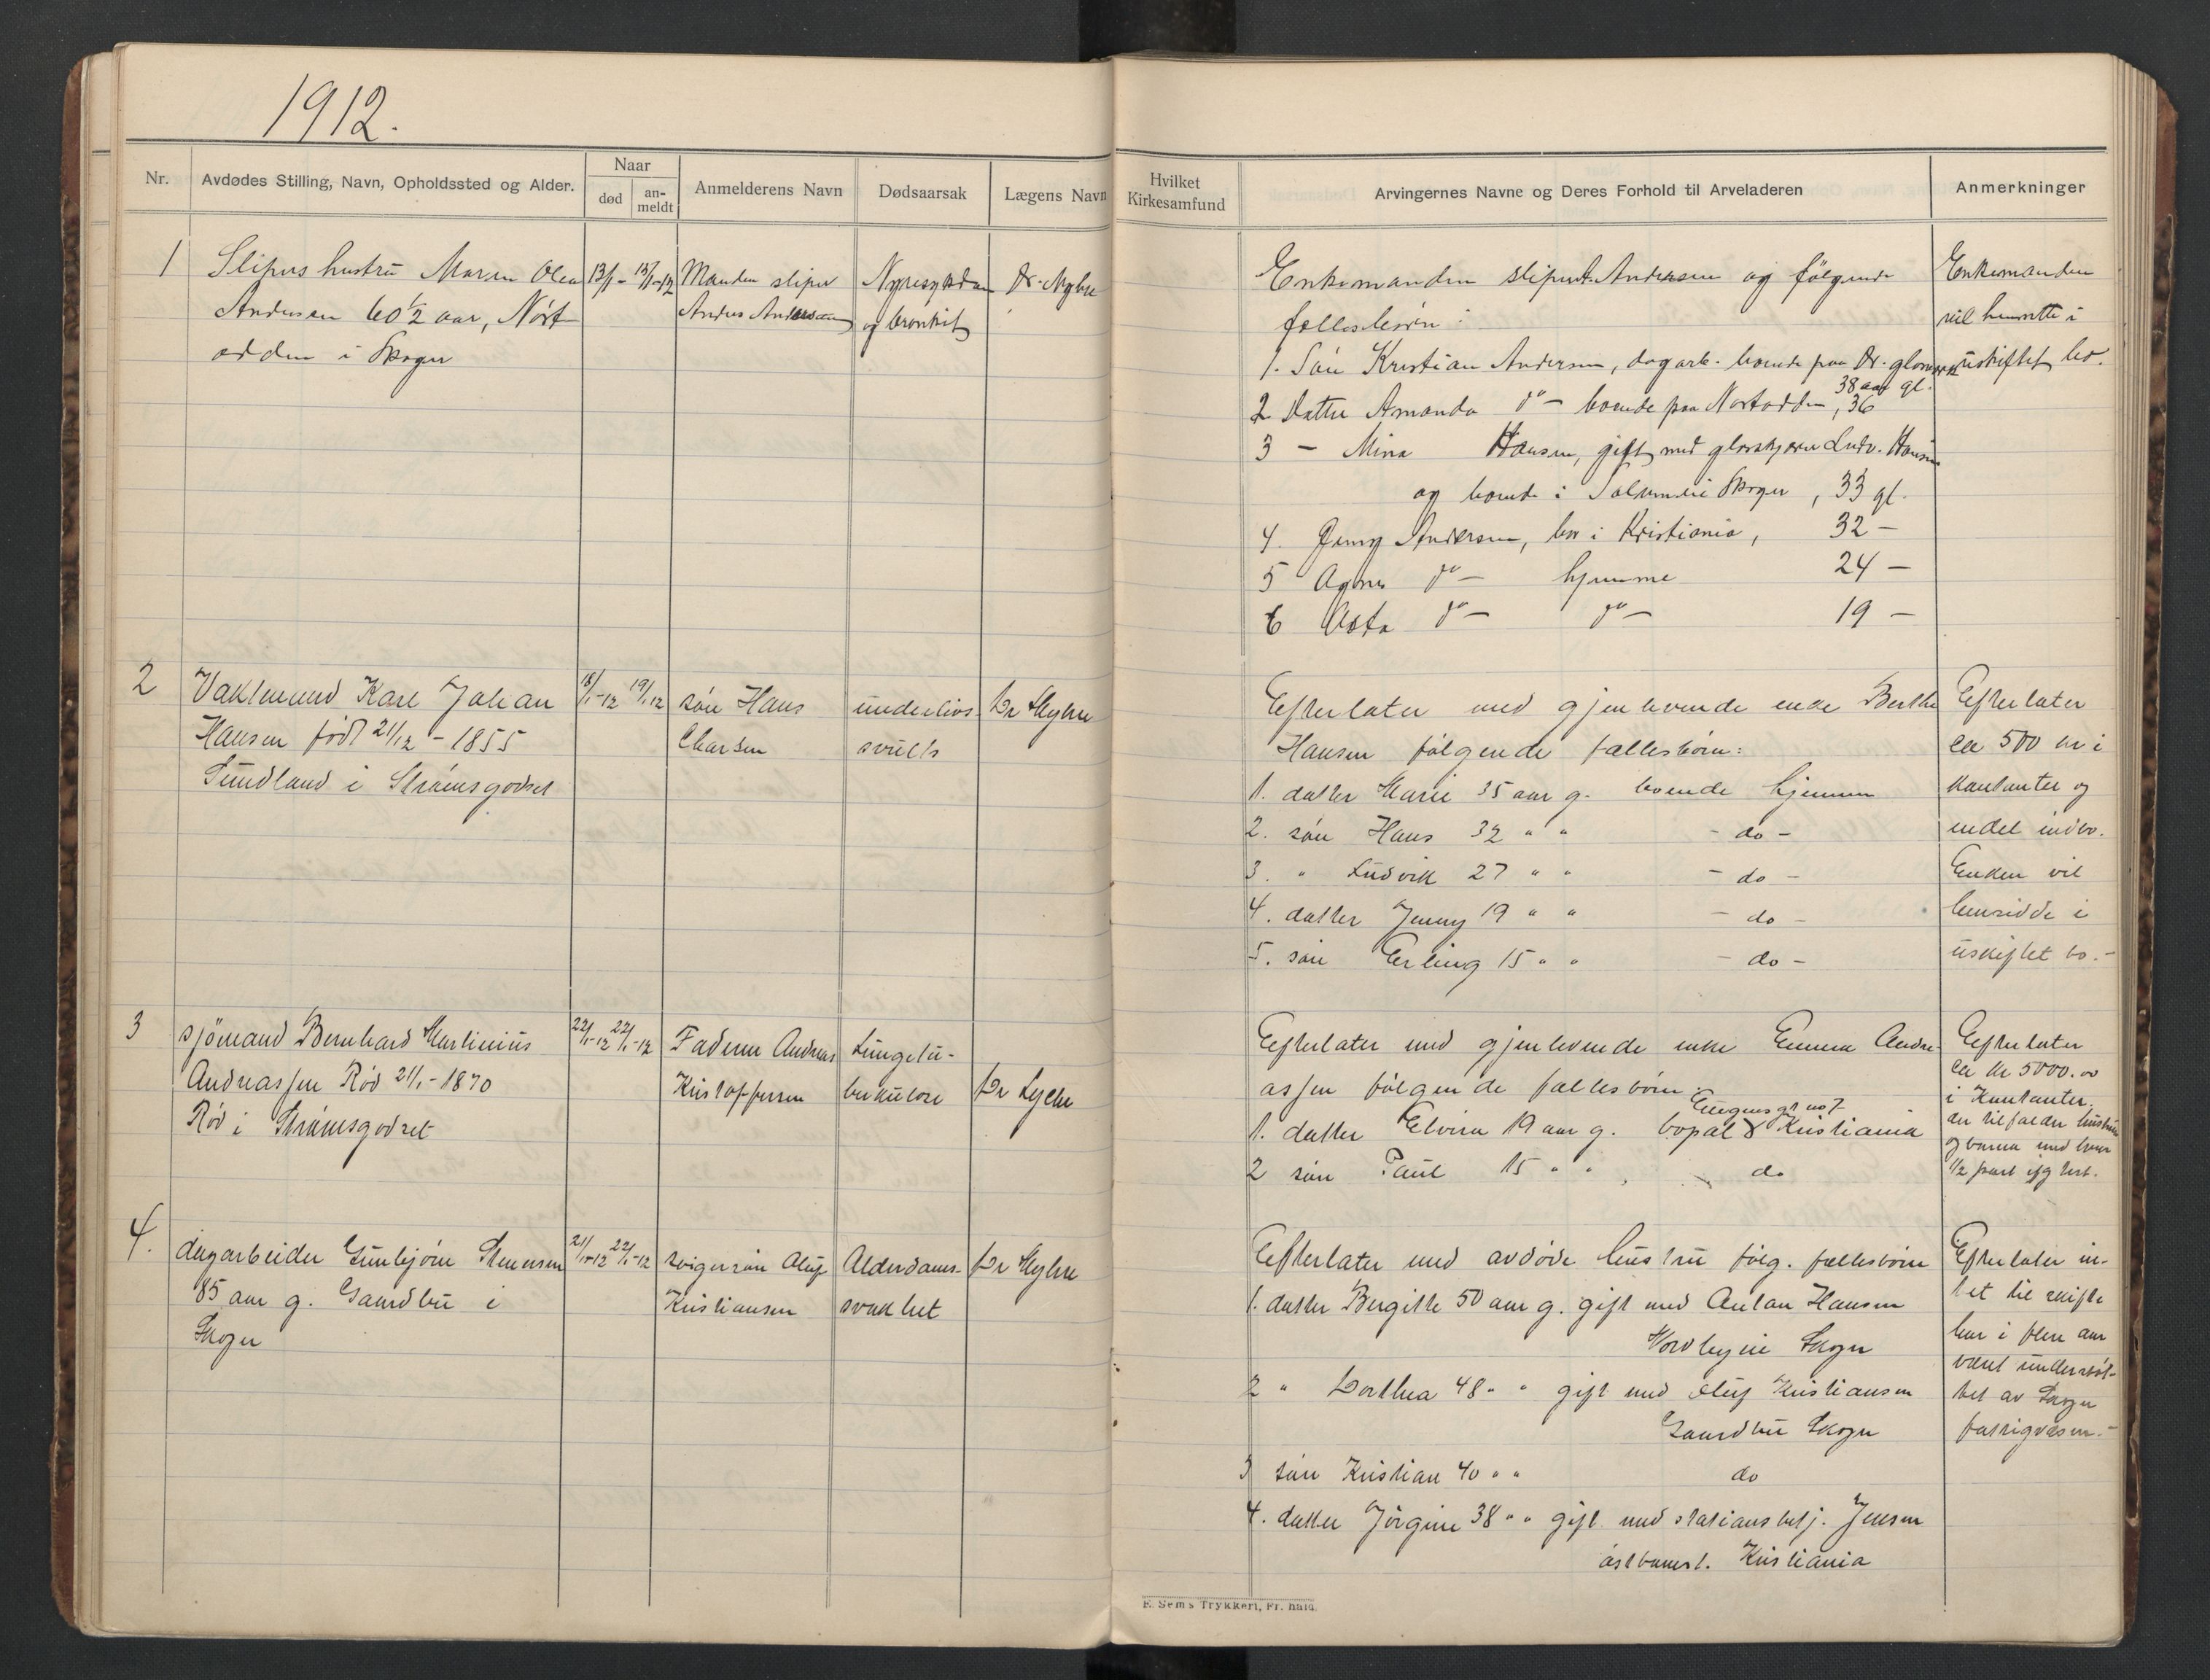 1912.
Nr.
Avdødes Stilling, Navn, Opholdssted og Alder.
Naar
død
an-
meldt
Anmelderens Navn
Dødsaarsak
Lægens Navn
Hvilket
Kirkesamfund
Arvingernes Navne og Deres Forhold til Arveladeren
Anmerkninger
1
Slipers hustru Maren Olea
Andersen 60½ aar, Nøst-
odden i Skoger
13/1 - 13/1-12
Manden sliper
Anders Andersen
Nyresygdom
og bronkit
Dr. Myhre
Enkemanden sliper A. Andersen og følgende
fællesbørn:
1. Søn Kristian Andersen, dagarb. boende paa Dr. 
38 aar gl.
2 Datter Amanda do - boende paa Nøstodden, 36
3 - Mina Hansen, gift med Ludv. Hansen
og boende i Skoger, 33 gl.
4. Jenny Andersen, bor i Kristiania, 32 -
5 Agnes do - hjemme 24 -
6 Asta do - do - 19 -
Enkemanden
vil hensitte i
uskiftet bo.
2
Vaktmand Karl Johan
Hansen født 21/12 - 1855
Sundland i Strømsgodset
18/1-12 19/1-12
søn Hans
Carlsen
underlivs
svulst
Dr Myhre
Efterlater med gjenlevende enke Berthe
Hansen følgende fællesbørn:
1. datter Marie 35 aar g. boende hjemme
2. søn Hans 32 " " - do -
3. " Ludvik 27 " " - do -
4. datter Jenny 19 " " - do -
5. søn Erling 15 " " - do -
Efterlater
ca 500 kr i
kontanter og
endel indbo.
Enken vil
hensidde i
uskiftet bo. -
3
sjømand Bernhard Martinius
Andreassen Rød 21/1 - 1870
Rød i Strømsgodset
22/1-12 22/1-12
Faderen Andreas
Kristoffersen
Lungetu-
berkulose
Dr Lyche
Efterlater med gjenlevende enke Emma Andre-
assen følgende fællesbørn:
Eugens gt no 7
1. datter Elvira 19 aar g. bopæl Kristiania
2 søn Paul 15 " " do
Efterlater
ca kr 5000.00
i Kontanter.
der tilfalder hustru
og barna med hver
1/2 part
4.
dagarbeider Gunbjørn Stenersen
85 aar g. Gaardbu i
Skoger
21/1-12 22/1-12
svigersøn Oluf
Kristiansen
Alderdoms-
svakhet
Dr Myhre
Efterlater med avdøde hustru følg. fællesbørn
1. datter Bergitte 50 aar g. gift med Anton Hansen
Nordbyeie Skoger
2 " Dorthea 48 " " gift med Oluf Kristiansen
Gaardbu Skoger
3 søn Kristian 40 " " do
4. datter Jørgine 38 " " gift med stationsbetj. Jensen
østbanest. Kristiania
Efterlater in-
tet til skifte
har i flere aar
været understøt-
tet av Skoger
fattigvæsen. -
E. Sem's Trykkeri, Fr. hald.